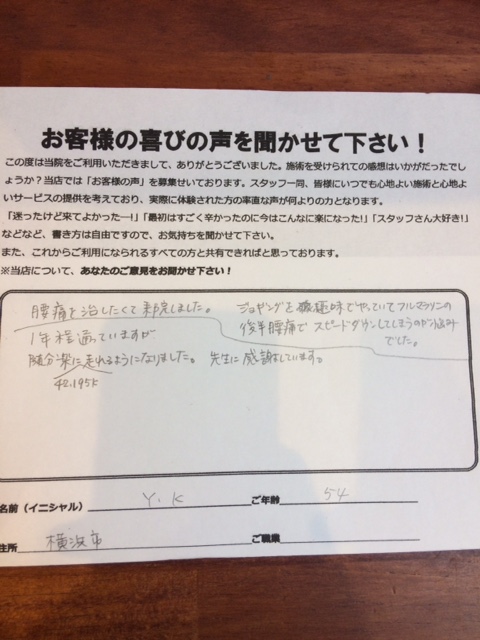 お客様の喜びの声を聞かせて下さい！
この度は当院をご利用いただきまして、ありがとうございました。施術を受けられての感想はいかがだったでし
ょうか？当店では「お客様の声」を募集せいております。スタッフ一同、皆様にいつでも心地よい施術と心地よ
いサービスの提供を考えており、実際に体験された方の率直な声が何よりの力となります。
「迷ったけど来てよかったー！」「最初はすごく辛かったのに今はこんなに楽になった！」「スタッフさん大好き！」
などなど、書き方は自由ですので、お気持ちを聞かせて下さい。
また、これからご利用になられるすべての方と共有できればと思っております。
※当店について、あなたのご意見をお聞かせ下さい！
腰痛を治したくて来院しました。
ジョギングを趣味でやっていてフルマラソンの
後半腰痛でスピードダウンしてしまうのが悩み
でした。
1年程通っていますが
随分楽に走れるようになりました。先生に感謝しています。
42.195K
名前（イニシャル） Y.K ご年齢 54
住所 横浜市 ご職業